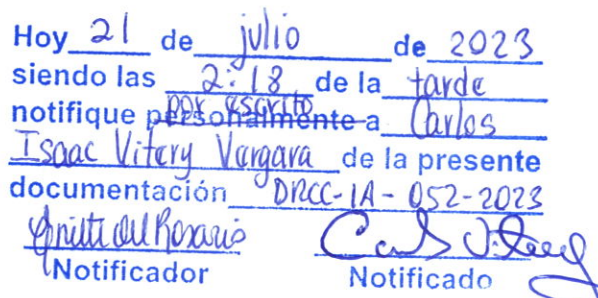 Hoy 21 de julio de 2023
siendo las 2:18 de la tarde
por escrito
notifique personalmente a Carlos
Isaac Vitery Vergara de la presente
documentación DRCC-IA-052-2023
del Rosario
Notificador Notificado